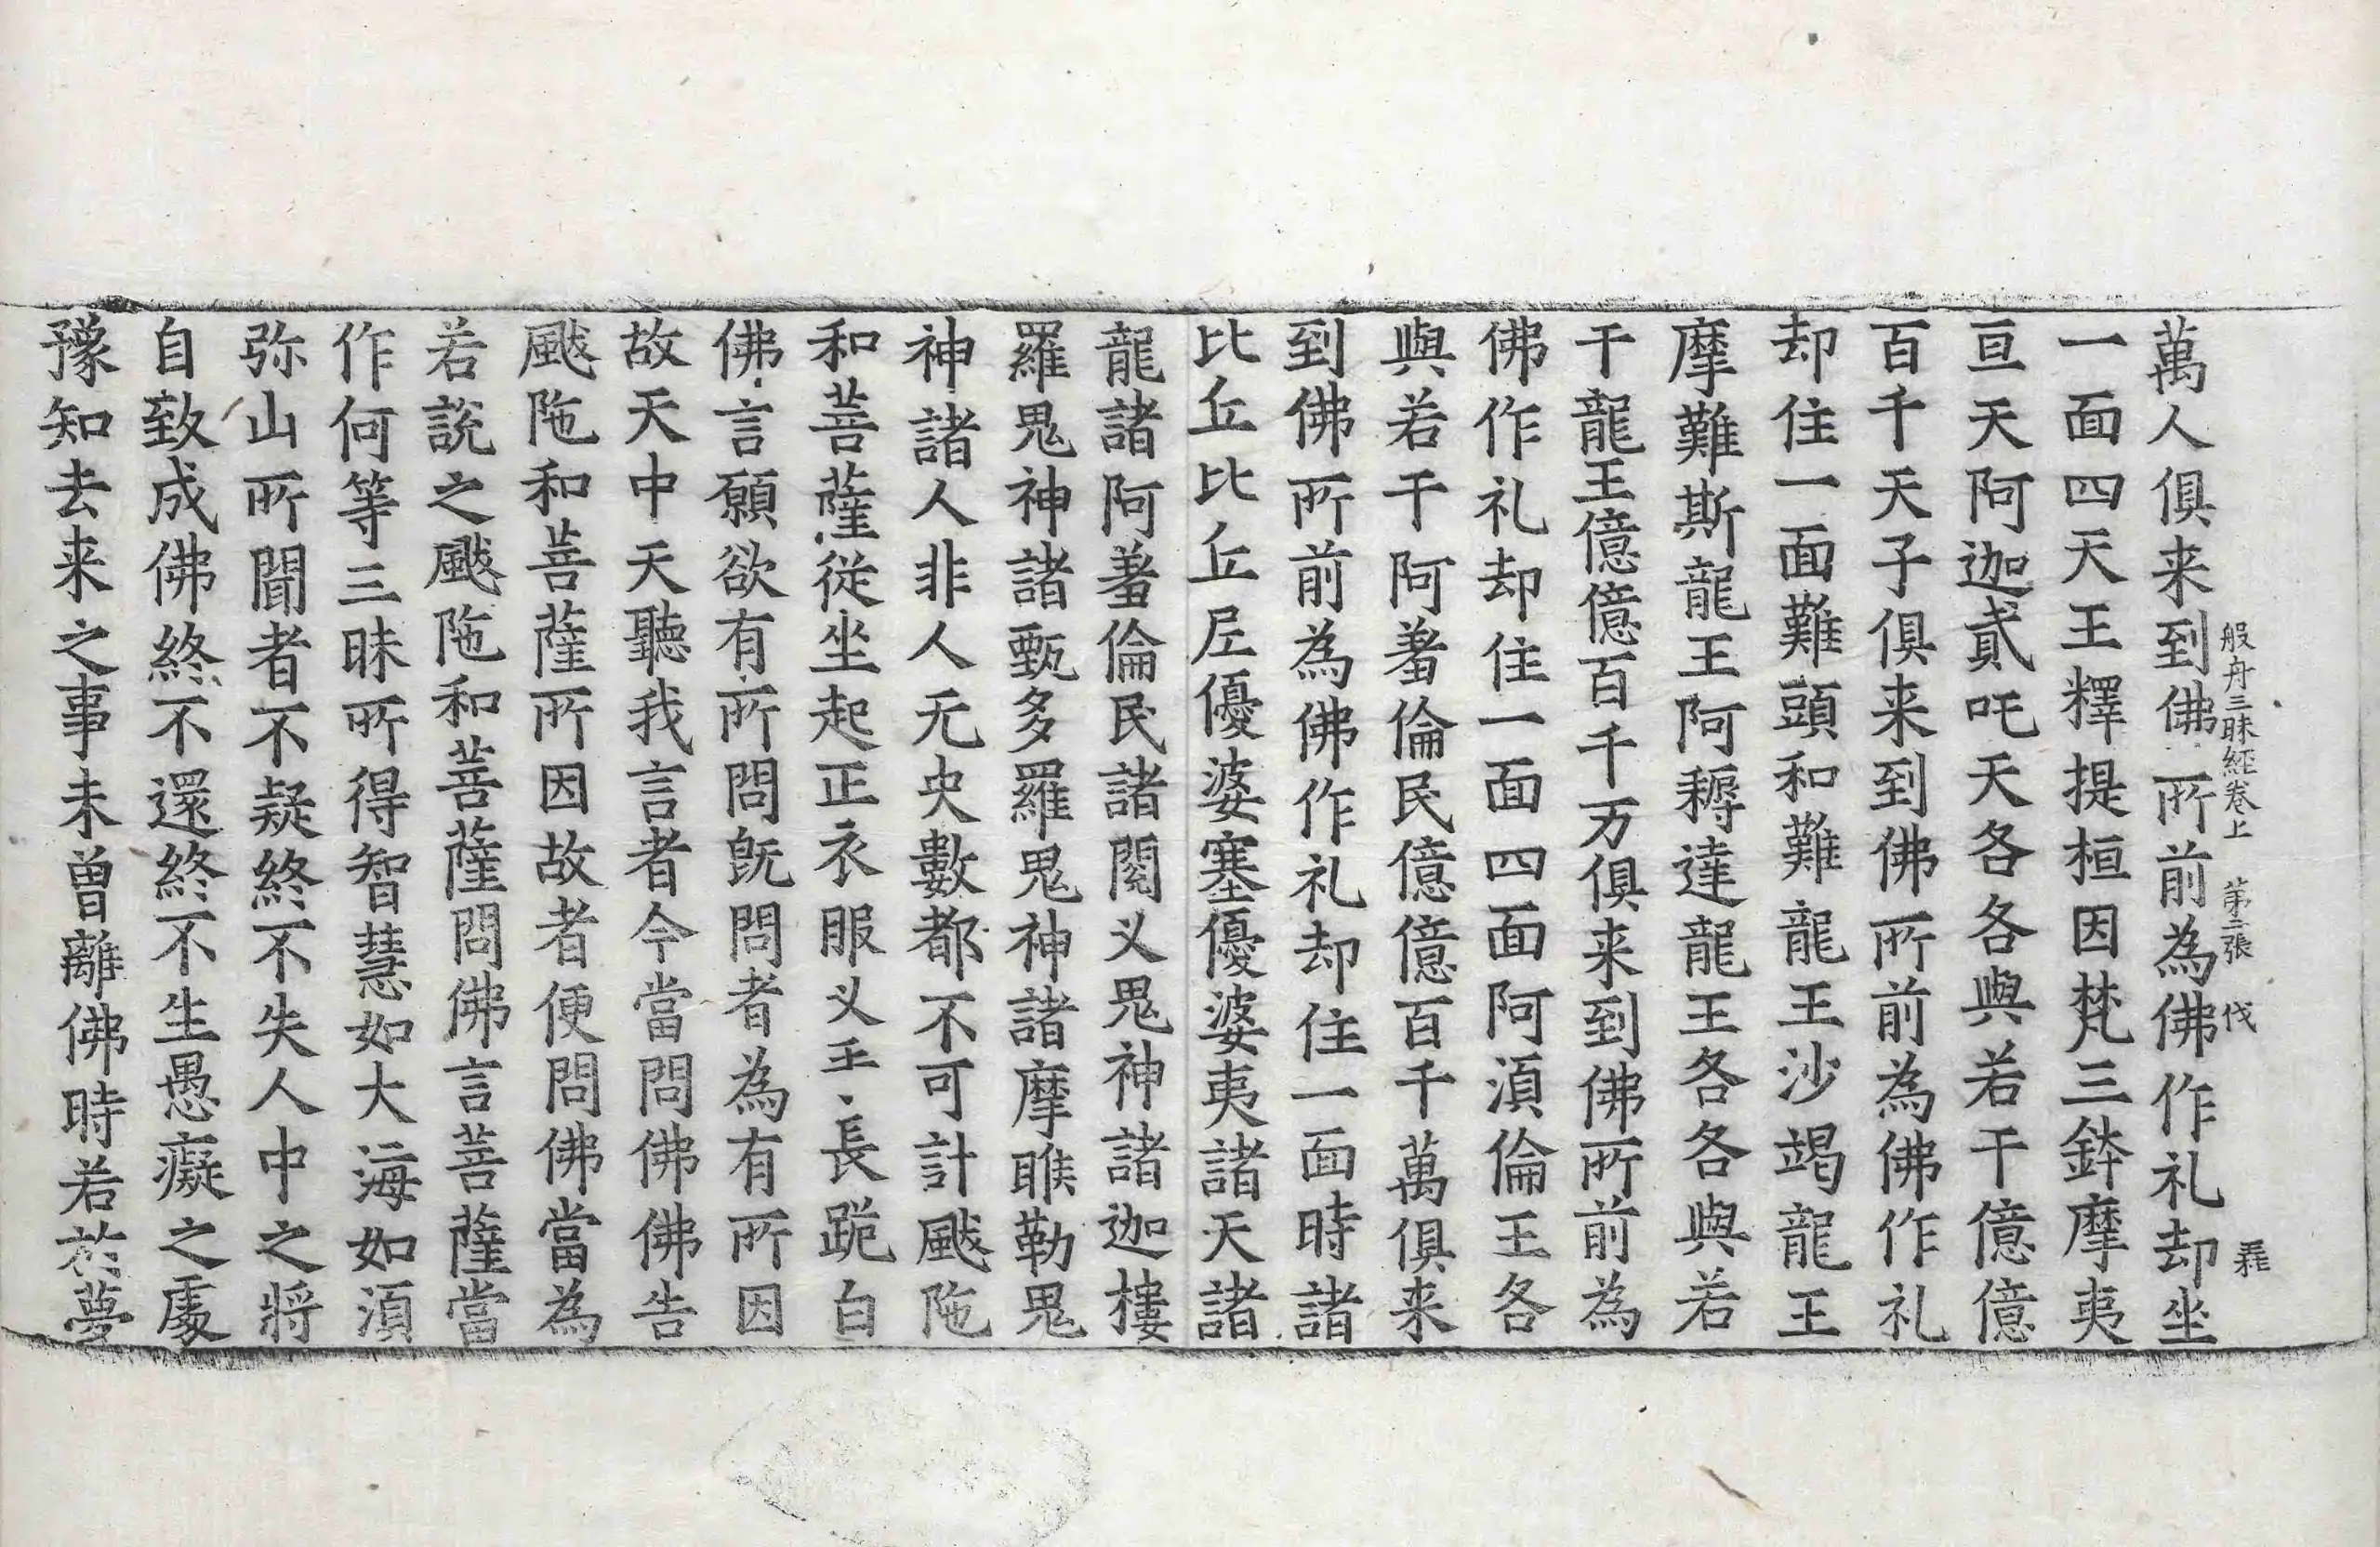 般舟三昧經卷上 第二張 伐
萬人俱来到佛所前為佛作礼却坐
一面四天王釋提桓因梵三鉢摩夷
亘天阿迦貳吒天各各與若干億億
百千天子俱来到佛所前為佛作礼
却住一面難頭和難龍王沙竭龍王
摩難斯龍王阿耨達龍王各各與若
干龍王億億百千万俱来到佛所前為
佛作礼却住一面四面阿湏倫王各
與若干阿羞倫民億億百千萬俱来
到佛所前為佛作礼却住一面時諸
比丘比丘尼優婆塞優婆夷諸天諸
龍諸阿羞倫民諸閱叉鬼神諸迦樓
羅鬼神諸甄多羅鬼神諸摩睺勒鬼
神諸人非人无央數都不可計颰陁
和菩薩從坐起正衣服叉手長跪白
佛言願欲有所問旣問者為有所因
故天中天聽我言者今當問佛佛告
颰陁和菩薩所因故者便問佛當為
若說之颰陁和菩薩問佛言菩薩當
作何等三昧所得智慧如大海如湏
弥山所聞者不疑終不失人中之將
自致成佛終不還終不生愚癡之處
豫知去来之事未曾離佛時若於夢